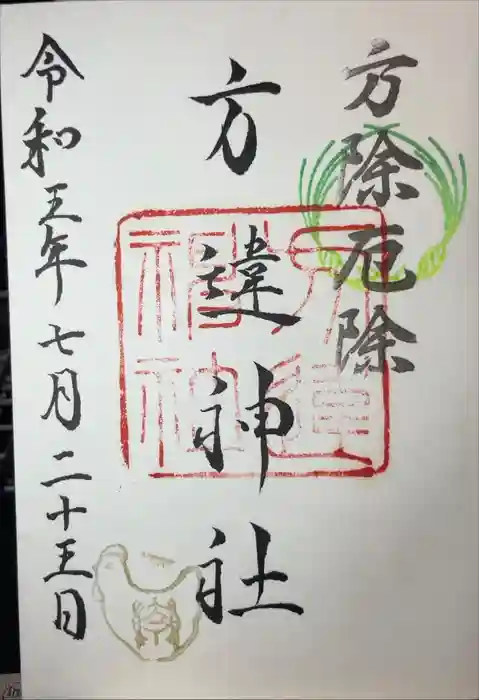 方除厄除
方違神社
令和五年七月二十五日